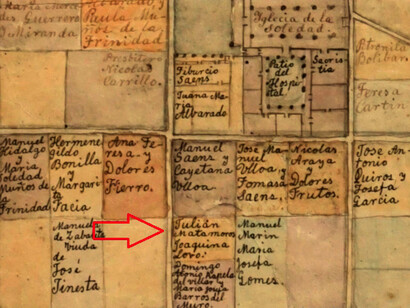 Guerrero
de Miranda
Reula Mu
ños de la
Trinidad
Presbitero
Nicolas
Carrillo.
Iglecia de la
Soledad.
Patio
del
Hospi
tal
Sacris
tia
Tiburcio
Saens
Juana Ma
ria
Alvarado
Petronila
Bolibar
Teresa
Cartin
Manuel
Hidalgo
y
Maria
Soledad
Muños de
la
Trinidad
Hermene
gildo
Bonilla
y
Margari
ta
Tacia
Ana Te
resa y
Dolores
Fierro.
Manuel
Saens y
Cayetana
Ulloa
Jose Ma
nuel
Ulloa y
Tomasa
Saens.
Nicolas
Araya
y
Dolores
Frutos.
Jose An
tonio
Quiros y
Josefa
Garcia
Manuela
de Zabaleta
Viuda
de
José
Finesta
Julián
Matamoros
Joaquina
Loro.
Domingo
del villar y
Barros del
Muro.
Manuel
Marin
Maria
Josefa
Gomez